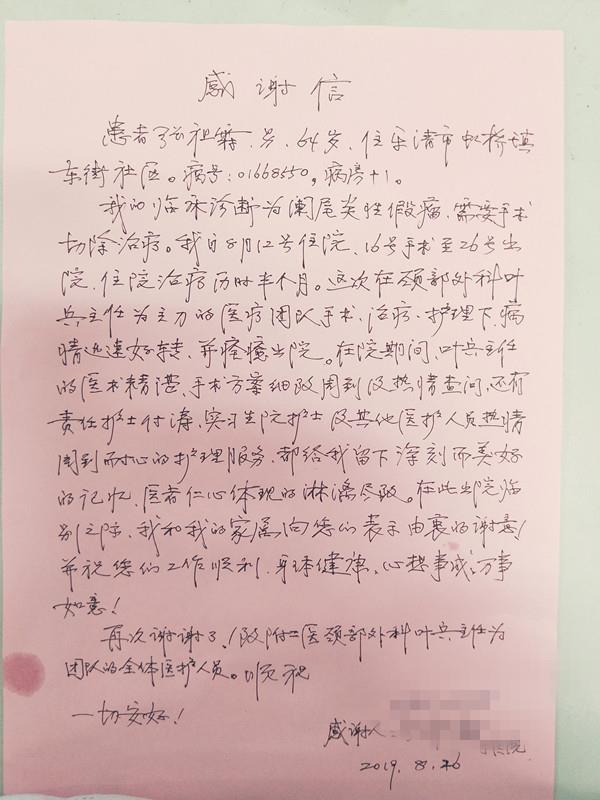 感谢信
患者张祖霖、男、64岁、住乐清市虹桥镇
东街社区。病号:01668550,病房+1。
我的临床诊断为阑尾类性假瘤、需要手术
切除治疗。我自8月12号住院、16号手术至26号出
院、住院治疗历时半个月。这次在颈部外科叶
兵主任为主刀的医疗团队手术、治疗、护理下、病
情迅速好转、并痊癒出院。在院期间、叶兵主任
的医术精湛、手术方案细致周到及热情查问、还有
责任护士付涛、实习生阮护士及其他医护人员热情
周到而耐心的护理服务、都给我留下深刻而美好
的记忆、医者仁心体现的淋漓尽致。在此出院临
别之际、我和我的家属向您们表示由衷的谢意!
并祝您们工作顺利、身体健康、心想事成、万事
如意!
再次谢谢了、!致附二医颈部外科叶兵主任为
团队的全体医护人员。顺祝
一切安好!
感谢人:
2019.8.26